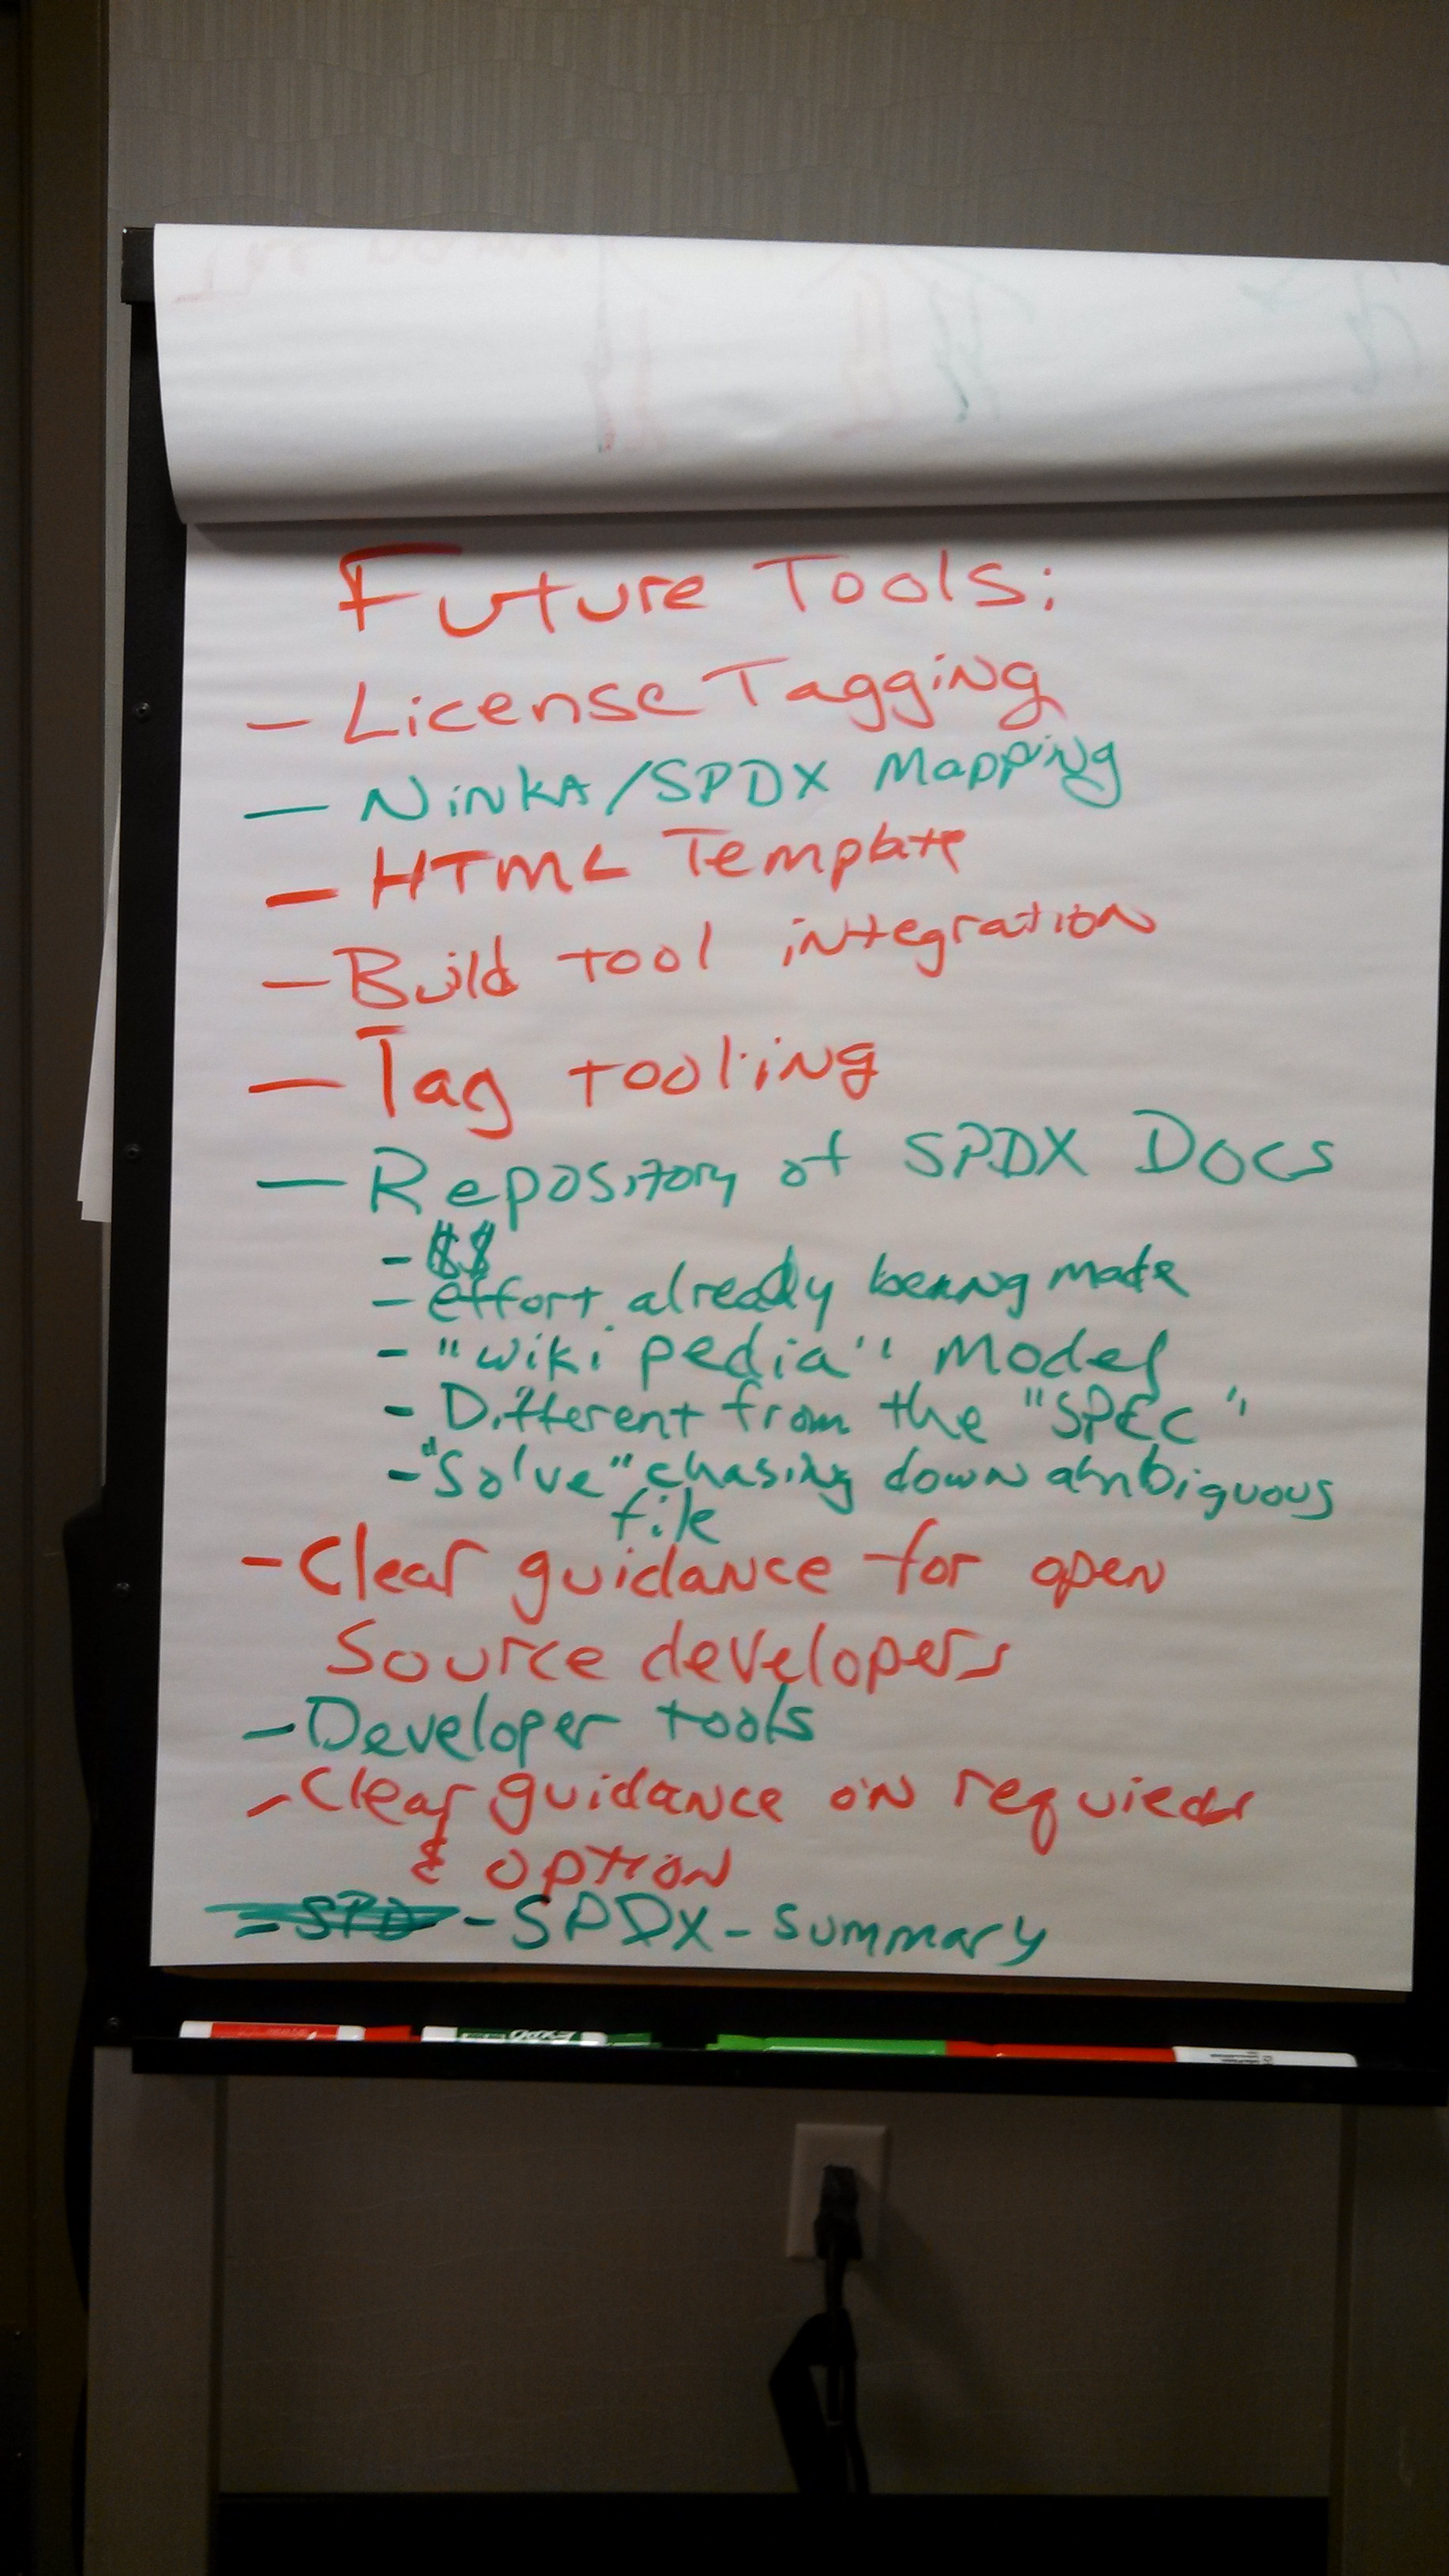 Future Tools:
- License Tagging
- Ninka/SPDX Mapping
- HTML Template
- Build tool integration
- Tag tooling
- Repository of SPDX Docs
- $$
- effort already being made
- "wikipedia" Model
- Different from the "SPEC"
- "Solve" chasing down ambiguous
file
- Clear guidance for open
Source developers
- Developer tools
- Clear guidance on required
& option
- SPD - SPDX - Summary
EXPO